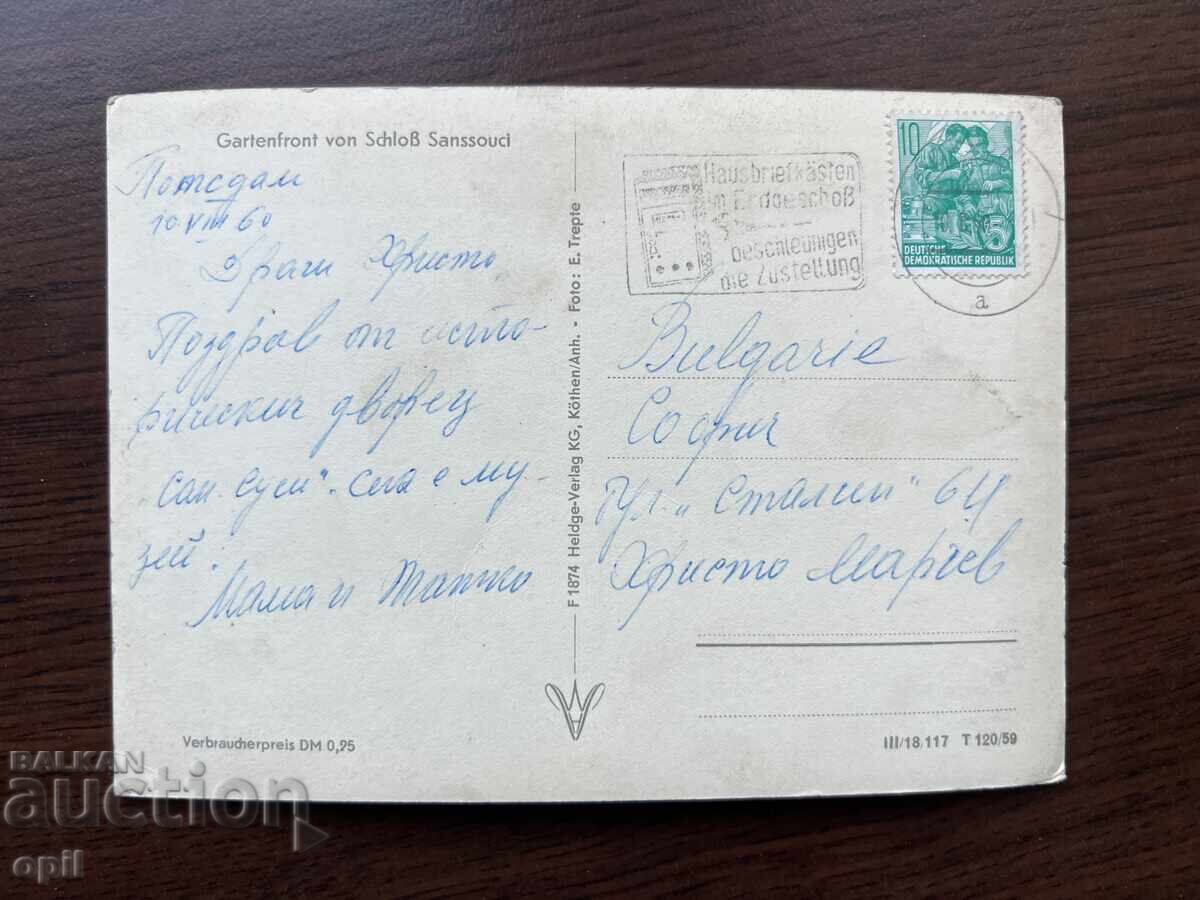 Gartenfront von Schloß Sanssouci
Потсдам
10.VIII 60
Драги Христо
Поздрав от исто-
рическия дворец
"Сан Суси". Сега е му-
зей.
Мама и Татко
F 1874 Heldge-Verlag KG, Köthen/Anh. - Foto: E. Trepte
Hausbriefkästen
im Erdgeschoß
beschleunigen
die Zustellung
10
5
DEUTSCHE
DEMOKRATISCHE REPUBLIK
a
Bulgarie
София
Ул. "Сталин" 64
Христо Марчев
Verbraucherpreis DM 0,95
III/18/117 T 120/59
BALKAN
auction
opil